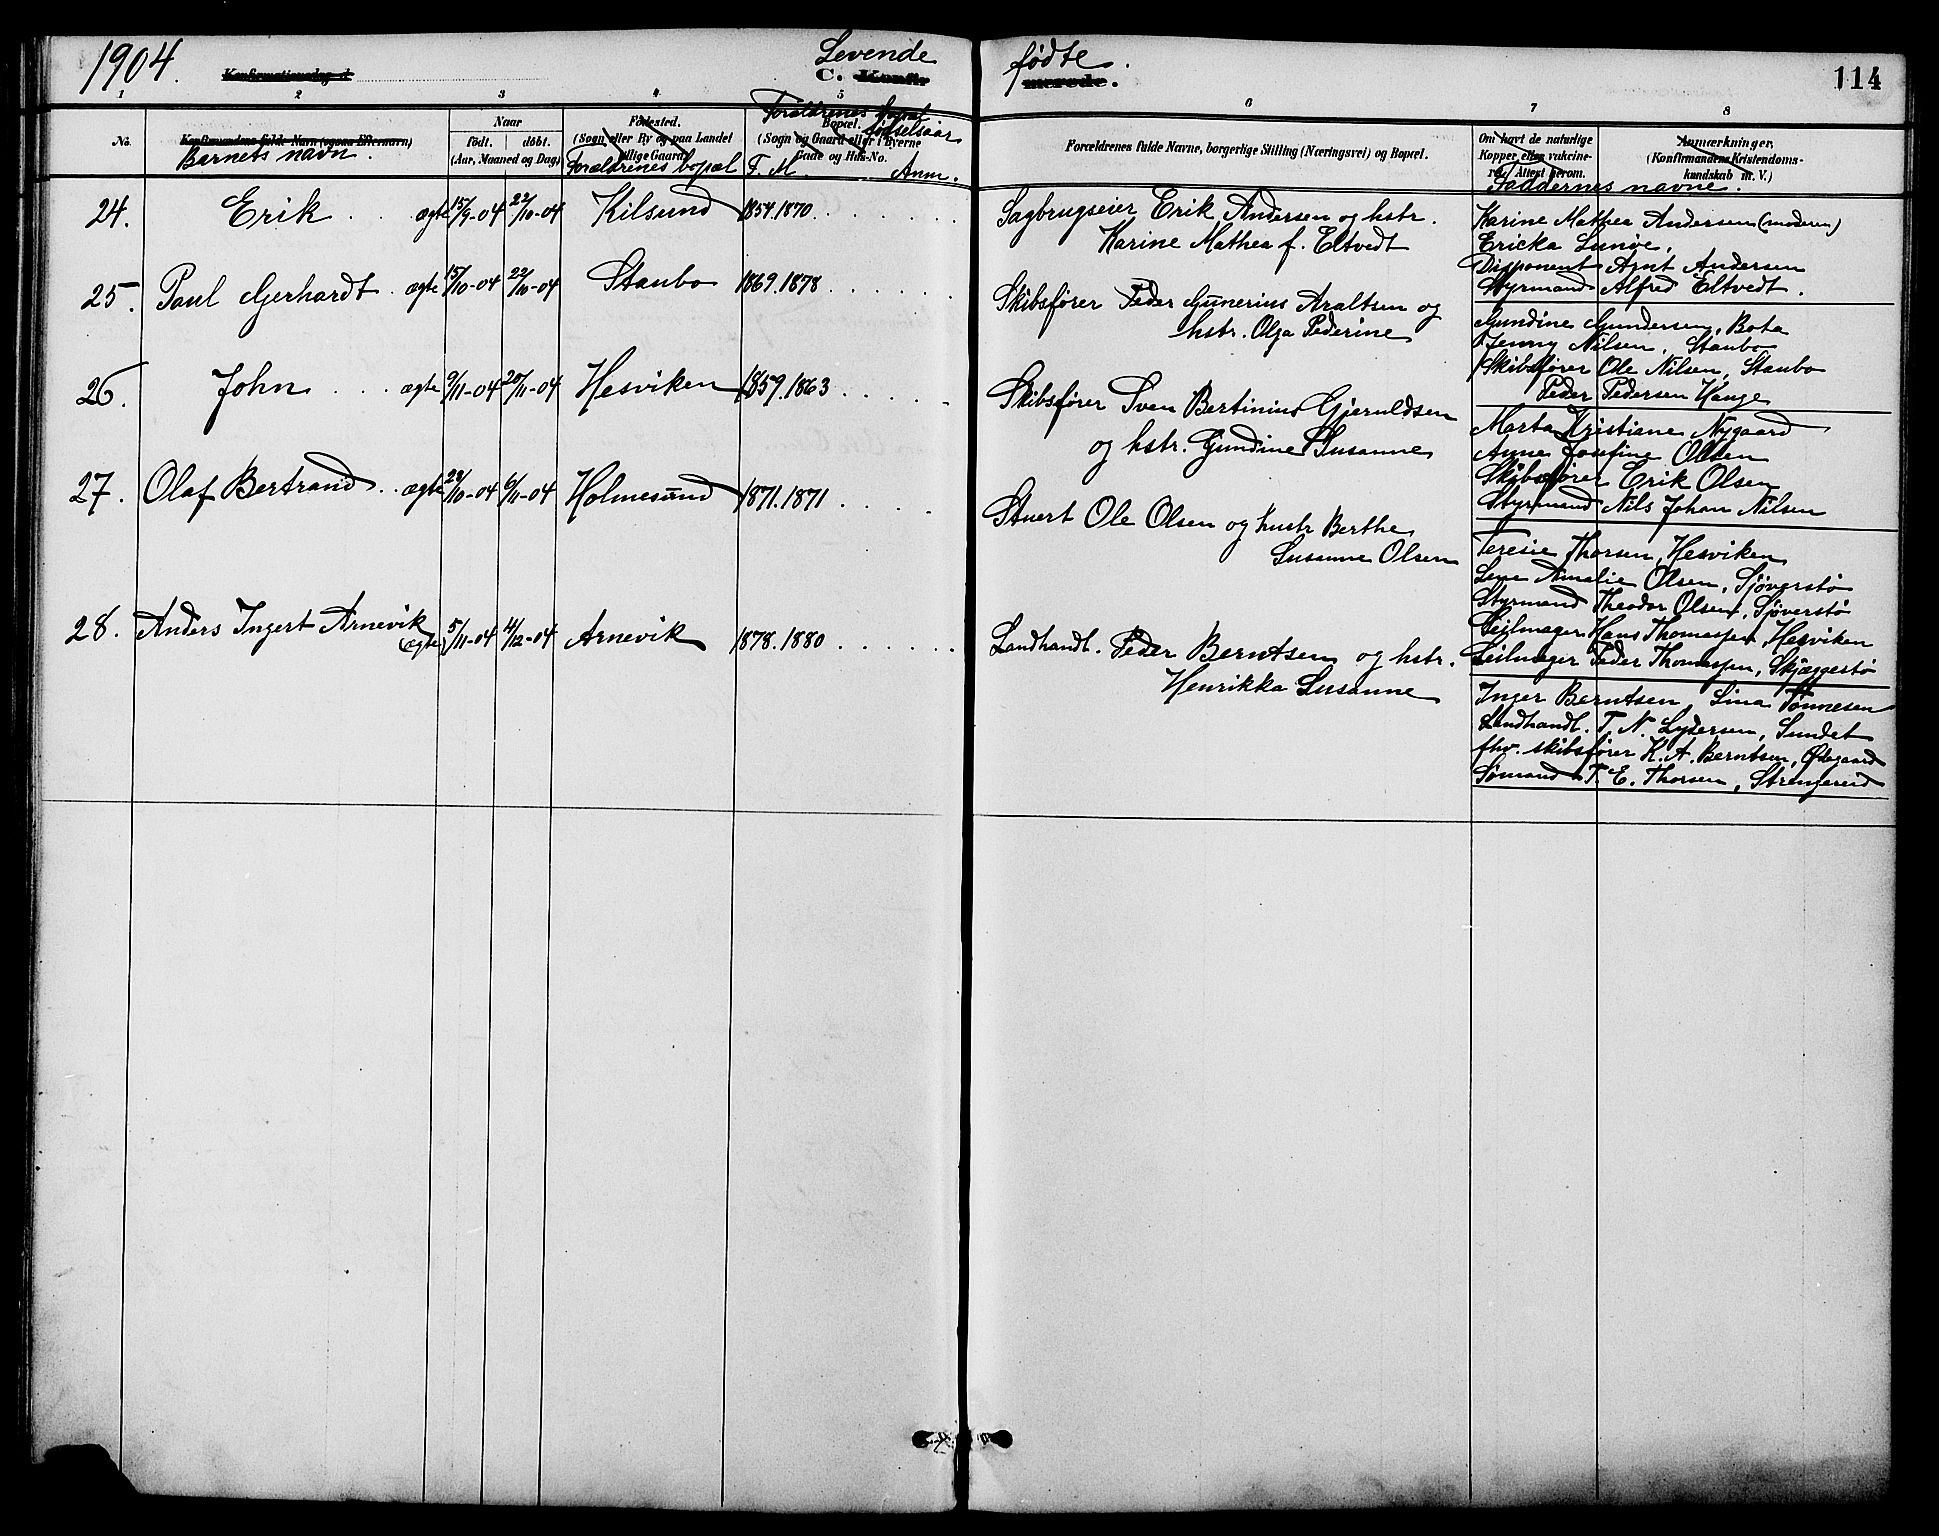 1904.
Konfirmationsdag d
Levende
C. Konfir
fødte.
merede.
114
1 2 3 4 5 6 7 8
No.
Konfirmandens fulde Navn (ogsaa Efternavn)
Barnets navn.
Naar
født. døbt.
(Aar, Maaned og Dag)
Fødested.
(Sogn eller By og paa Landet
tillige Gaard)
Forældrenes bopæl
Forældrenes bopæl
fødselsaar
Bopæl.
(Sogn og Gaard eller i Byerne
Gade og Hus-No.
F. M. Anm.
Forældrenes fulde Navne, borgerlige Stilling (Næringsvei) og Bopæl.
Om havt de naturlige
Kopper eller vakcine-
ret. Attest herom.
Anmærkninger,
(Konfirmandens Kristendoms-
kundskab m. V.)
Faddernes navne.
24. Erik . . ægte 15/9-04 22/10-04 Kilsund 1854.1870. . . . . . .
Sagbrugseier Erik Andersen og hstr.
Karine Mathea f. Eltvedt
Karine Mathea Andersen (moderen)
Ericka Lunøe,
Disponent Arnt Andersen
Styrmand Alfred Eltvedt.
25. Paul Gerhardt. ægte 15/10-04 22/10-04 Staubo 1869.1878 . . . . . .
Skibsfører Peder Gunerius Araltsen og
hstr. Olga Pederine
Gundine Gundersen, Bota
Jenny Nilsen, Staubo
Skibsfører Ole Nilsen, Staubo
Peder Pedersen Hauge
26. John . . . ægte 9/11-04 20/11-04 Hesviken 1859.1863 . . . . .
Skibsfører Sven Bertinius Gjeruldsen
og hstr. Gundine Susanne
Marta Kristiane Nygaard
Anne Josefine Olsen
Skibsfører Erik Olsen
Styrmand Nils Johan Nilsen
27. Olaf Bertrand. . ægte 29/10-04 6/11-04 Holmesund 1871.1871 . . . .
Stuert Ole Olsen og hustr Berthe
Susanne Olsen
Teresie Thorsen, Hesviken
Lene Amalie Olsen, Sjøverstø
Styrmand Theodor Olsen, Sjøverstø
Seilmager Hans Thomassen, Hesviken
Seilmager Peder Thomassen, Skjæggestø
28. Anders Ingert Arnevik
(ægte) 5/11-04 4/12-04 Arnevik 1878.1880 . . . . . .
Landhandl. Peder Berntsen og hstr.
Henrikka Susanne
Inger Berntsen, Lina Tønnesen
Landhandl. T. N. Lydersen, Sundet
fhv. skibsfører K. A. Berntsen, Ødegaard
Sømand T. E. Thorsen, Strengereid